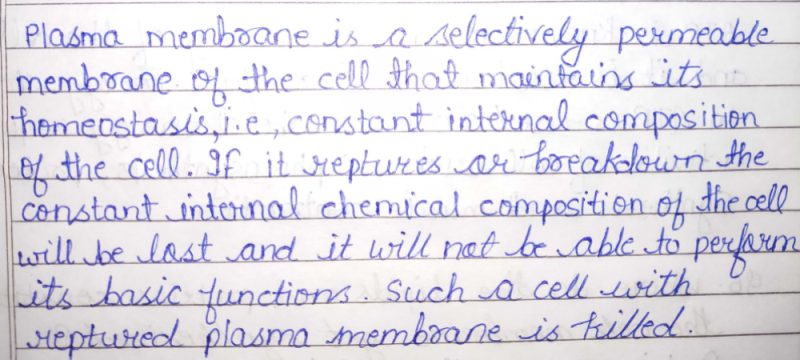 Plasma membrane is a selectively permeable
membrane of the cell that maintains its
homeostasis, i.e, constant internal composition
of the cell. If it reptures or breakdown the
constant internal chemical composition of the cell
will be lost and it will not be able to perform
its basic functions. Such a cell with
reptured plasma membrane is killed.